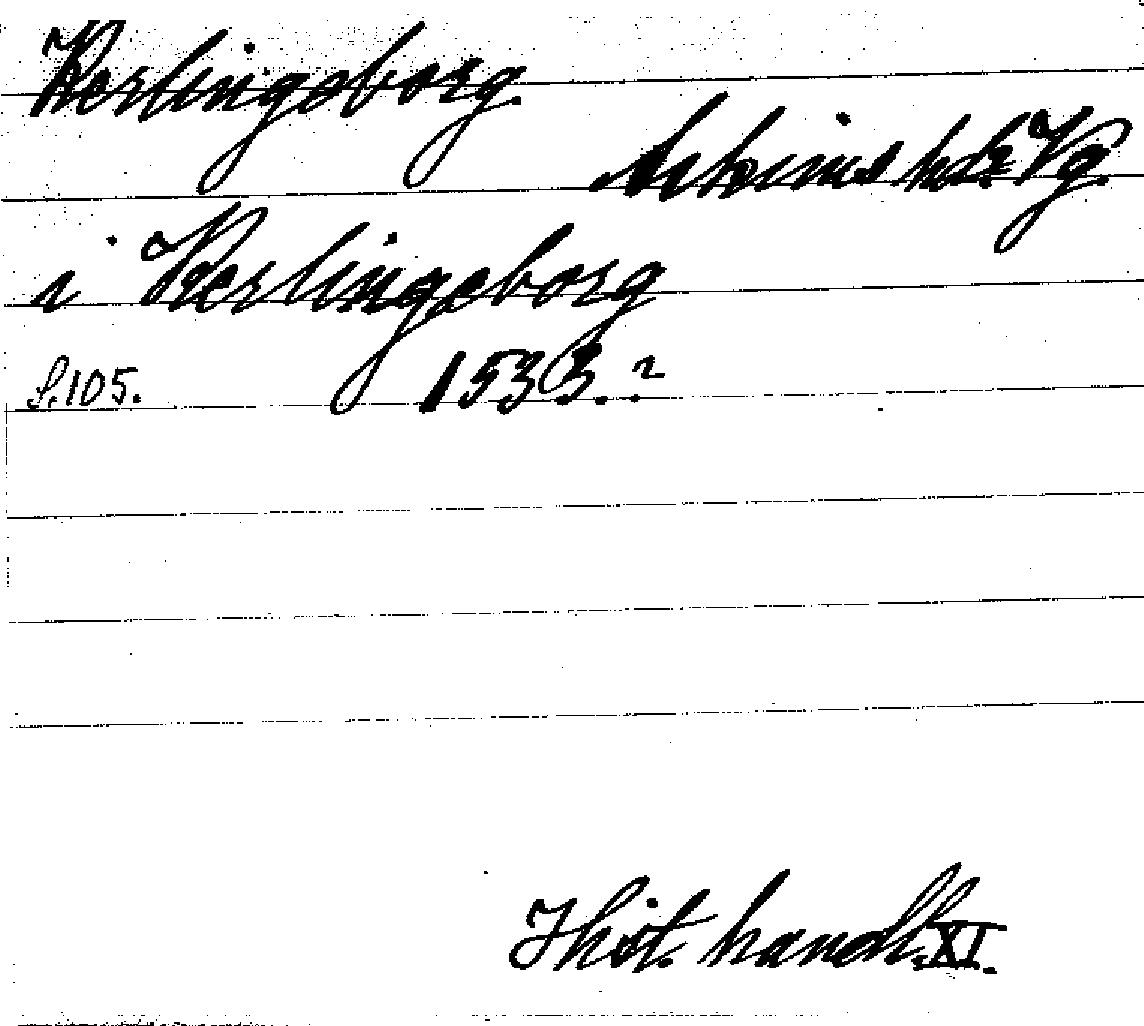 Kerlingeborg.
Askims hd. Vg.
i Kerlingeborg
S. 105. 1533.?
Hist. handl. XI.